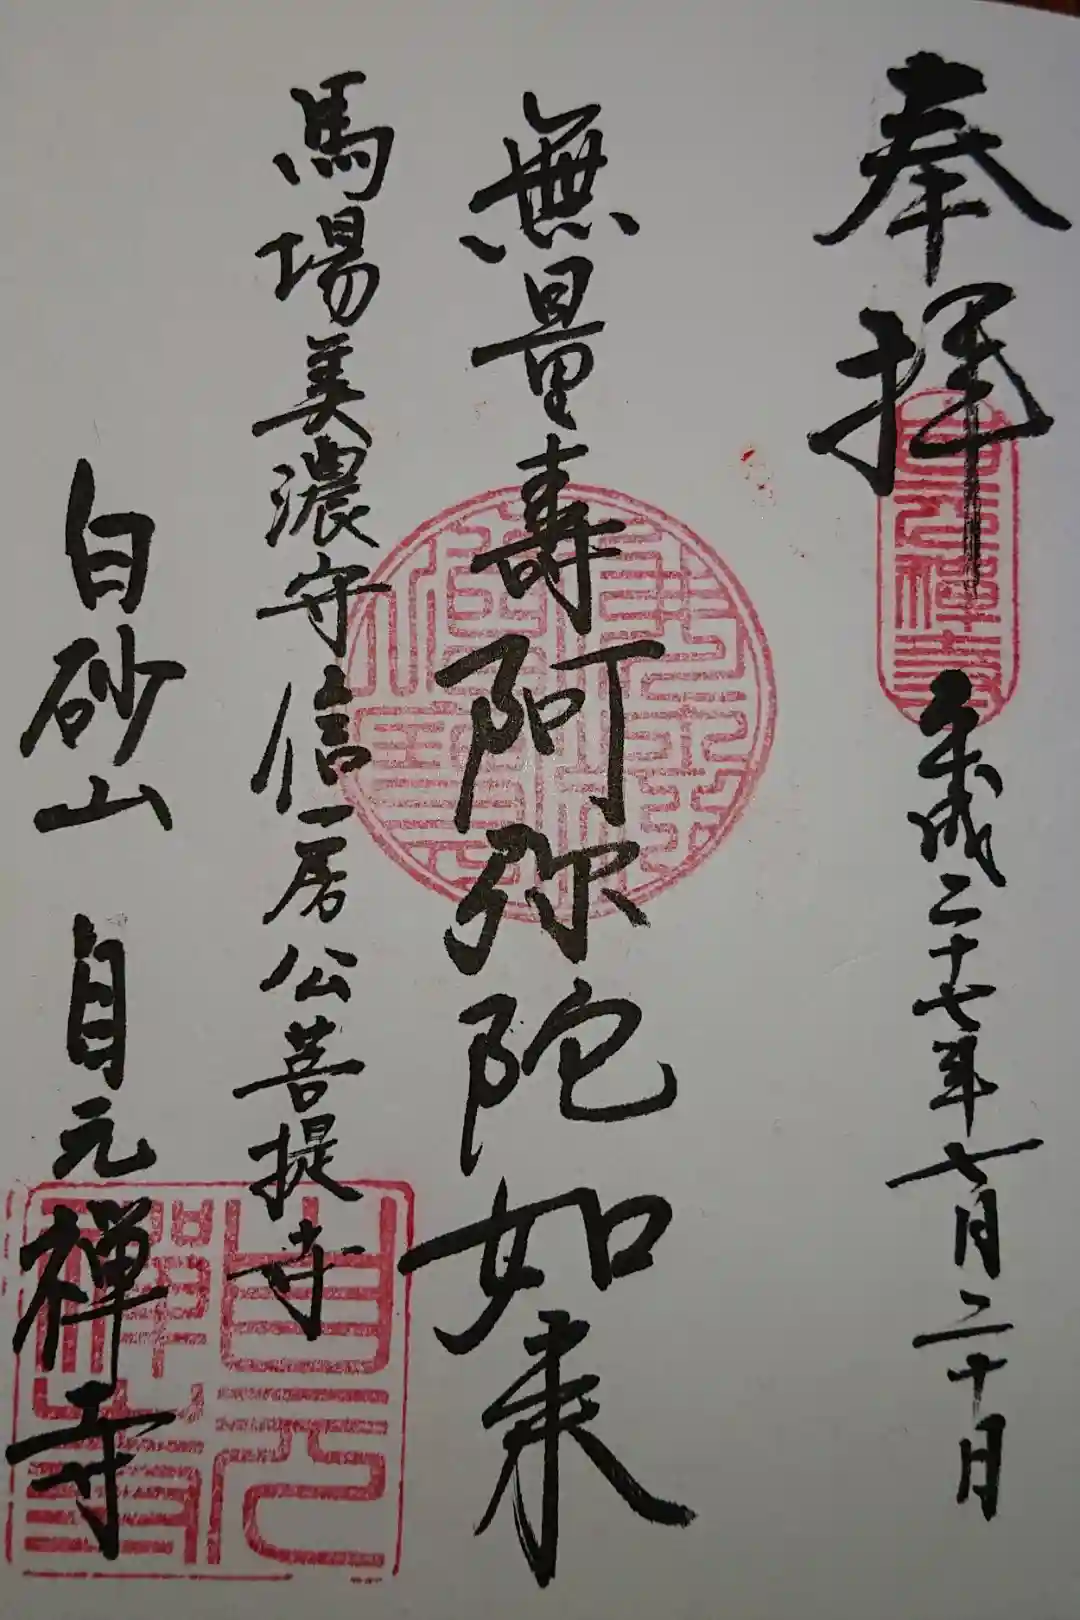 奉拝
自元禅寺
平成二十七年七月二十日
無量寿阿弥陀如来
馬場美濃守信房公菩提寺
白砂山 自元禅寺
自元禅寺